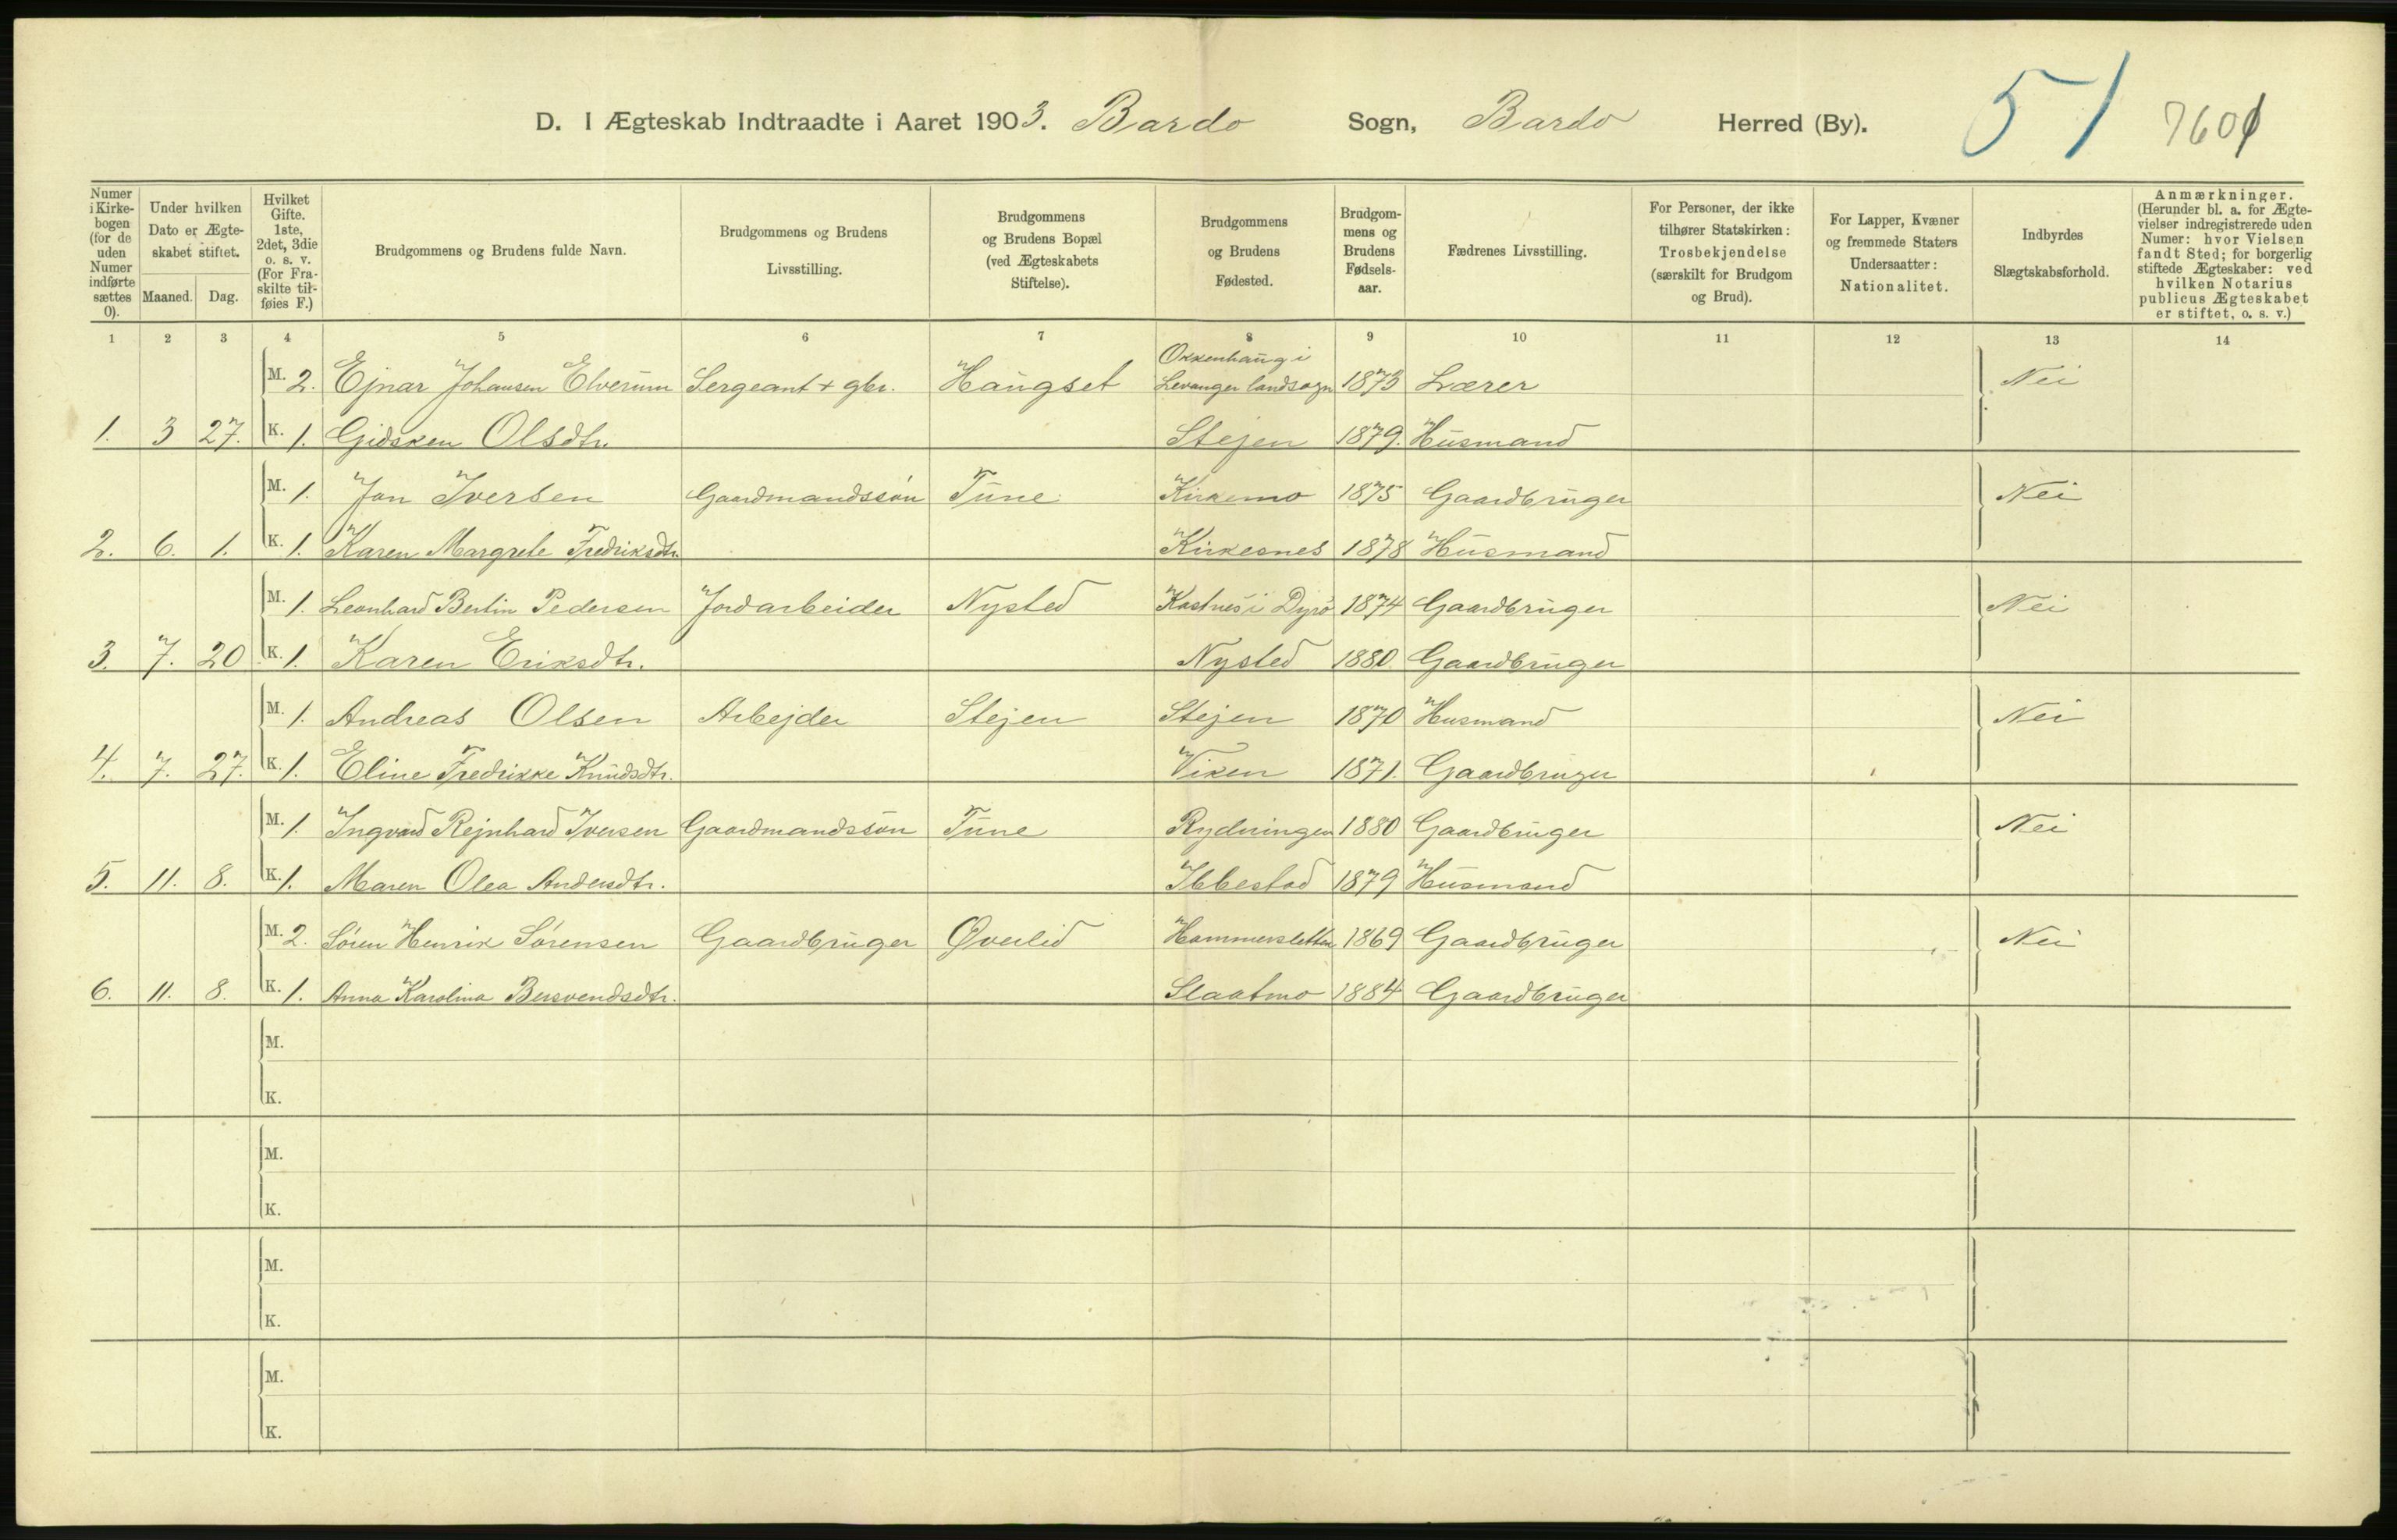 D. I Ægteskab Indtraadte i Aaret 1903. Bardo Sogn, Bardo Herred (By). 51 7601
Numer i Kirkebogen (for de uden Numer indførte sættes 0).
Under hvilken Dato er Ægteskabet stiftet.
Maaned. Dag.
Hvilket Gifte. 1ste, 2det, 3die o. s. v. (For Fraskilte tilføies F.)
Brudgommens og Brudens fulde Navn.
Brudgommens og Brudens Livsstilling.
Brudgommens og Brudens Bopæl (ved Ægteskabets Stiftelse).
Brudgommens og Brudens Fødested.
Brudgommens og Brudens Fødselsaar.
Fædrenes Livsstilling.
For Personer, der ikke tilhører Statskirken: Trosbekjendelse (særskilt for Brudgom og Brud).
For Lapper, Kvæner og fremmede Staters Undersaatter: Nationalitet.
Indbyrdes Slægtskabsforhold.
Anmærkninger. (Herunder bl. a. for Ægtevielser indregistrerede uden Numer: hvor Vielsen fandt Sted; for borgerlig stiftede Ægteskaber: ved hvilken Notarius publicus Ægteskabet er stiftet, o. s. v.)
1 2 3 4 5 6 7 8 9 10 11 12 13 14
M. 2. Ejnar Johansen Elverum Sergeant + gbr. Haugset Okkenhaug i Levanger landsogn 1873 Lærer Nei
1. 3 27. K. 1. Gidsken Olsdtr. Stejen 1879. Husmand
M. 1. Jon Iversen Gaardmandssøn Tune Kirkemo 1875 Gaardbruger Nei
2. 6. 1. K. 1. Karen Margrete Fredriksdtr. Kirkesnes 1878 Husmand
M. 1. Leonhard Bertin Pedersen Jordarbeider Nysted Kastnes i Dyrø 1874 Gaardbruger Nei
3. 7. 20 K. 1. Karen Eriksdtr. Nysted 1880. Gaardbruger
M. 1. Andreas Olsen Arbejder Stejen Stejen 1870 Husmand Nei
4. 7. 27. K. 1. Eline Fredrikke Knudsdtr. Viken 1871. Gaardbruger
M. 1. Ingvard Rejnhard Iversen Gaardmandssøn Tune Rydningen 1880 Gaardbruger Nei
5. 11. 8. K. 1. Maren Olea Andersdtr. Ibbestad 1879 Husmand
M. 2. Søren Henrik Sørensen Gaardbruger Øverlid Hammersletten 1869 Gaardbruger Nei
6. 11. 8. K. 1. Anna Karolina Bersvendsdtr. Slaatmo 1884 Gaardbruger
M.
K.
M.
K.
M.
K.
M.
K.